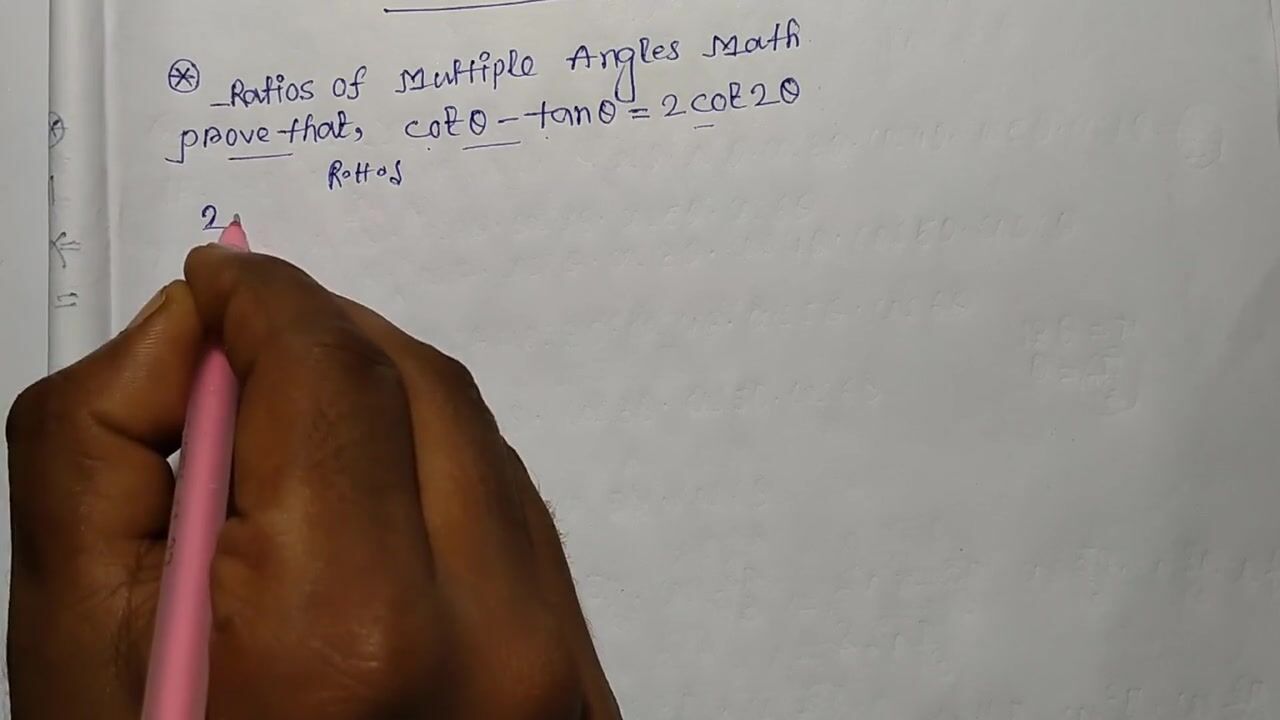 ⊛ Ratios of Multiple Angles Math
prove that, cotθ - tanθ = 2cot2θ
2